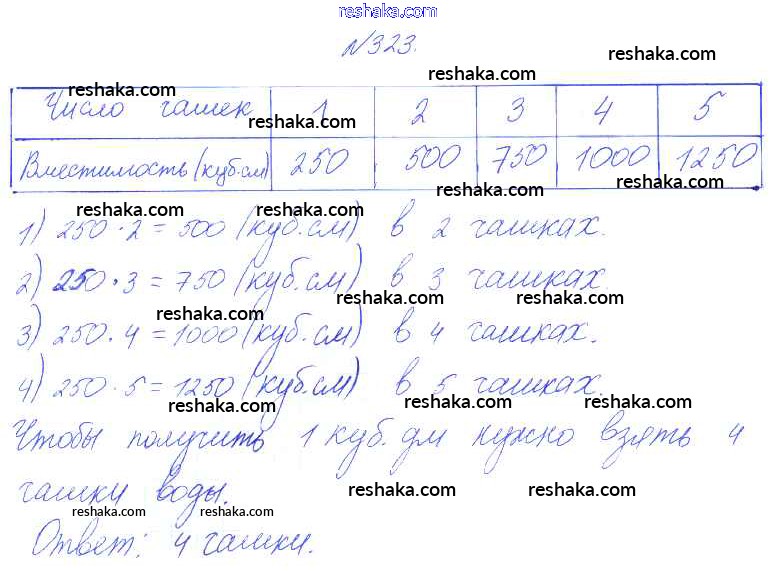 reshaka.com
№323.
reshaka.com
reshaka.com
Число чашек 1 2 3 4 5
reshaka.com reshaka.com reshaka.com
reshaka.com
Вместимость (куб.см) 250 500 750 1000 1250
reshaka.com
reshaka.com reshaka.com reshaka.com
1) 250·2=500 (куб.см) в 2 чашках.
2) 250·3=750 (куб.см) в 3 чашках.
reshaka.com reshaka.com
reshaka.com
3) 250·4=1000 (куб.см) в 4 чашках.
reshaka.com reshaka.com
4) 250·5=1250 (куб.см) в 5 чашках.
reshaka.com reshaka.com reshaka.com
Чтобы получить 1 куб.дм нужно взять 4
чашки воды.
reshaka.com reshaka.com
reshaka.com
Ответ: 4 чашки.